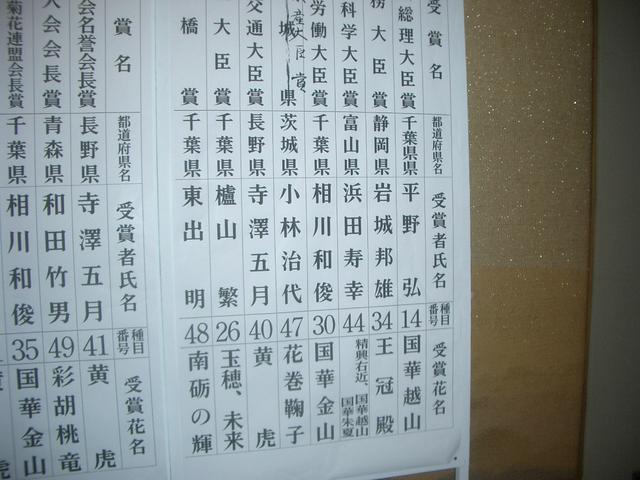 受賞名 都道府県名 受賞者氏名 種目番号 受賞花名
総理大臣賞 千葉県 平野弘 14 国華越山
務大臣賞 静岡県 岩城邦雄 34 王冠殿
科学大臣賞 富山県 浜田寿幸 44 精興右近、国華越山 国華朱夏
労働大臣賞 千葉県 相川和俊 30 国華金山
産大臣賞
城県 茨城県 小林治代 47 花巻鞠子
交通大臣賞 長野県 寺澤五月 40 黄虎
大臣賞 千葉県 櫨山繁 26 玉穂、未来
橋賞 千葉県 東出明 48 南砺の輝
賞名 都道府県名 受賞者氏名 種目番号 受賞花名
会名誉会長賞 長野県 寺澤五月 41 黄虎
人会会長賞 青森県 和田竹男 49 彩胡桃竜
菊花連盟会長賞 千葉県 相川和俊 35 国華金山
虎